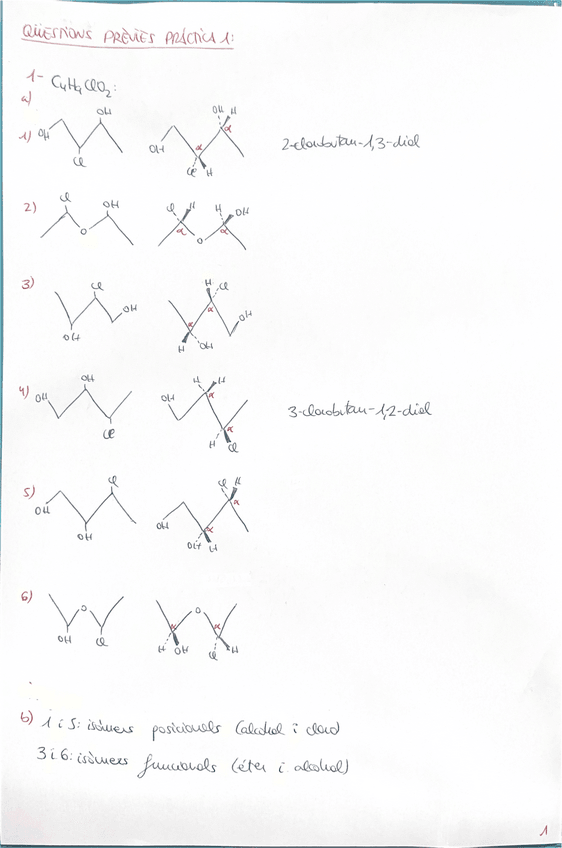 QÜESTIONS PRÈVIES PRÀCTICA 1:
1- C4H9ClO2:
a)
1) OH OH Cl OH OH H α α Cl H 2-clorobutan-1,3-diol
2) Cl OH O Cl H H OH α α O
3) Cl OH OH H Cl α α OH H OH
4) OH OH Cl OH H H α α H Cl 3-clorobutan-1,2-diol
5) Cl OH OH Cl H α α OH OH H
6) O OH Cl O α α H OH Cl H
b) 1 i 5: isòmers posicionals (alcohol i cloro)
3 i 6: isòmers funcionals (éter i alcohol)
1